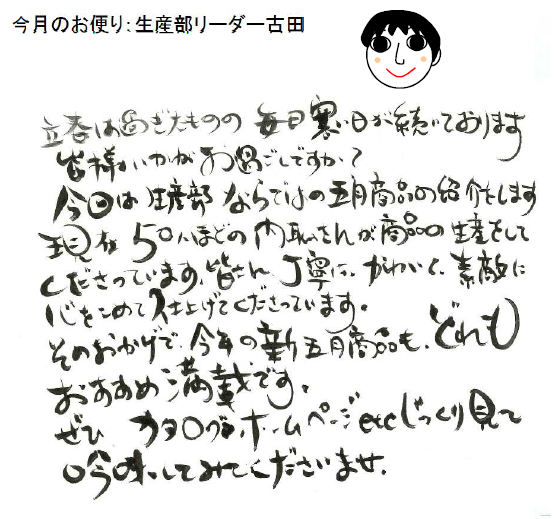 今月のお便り:生産部リーダー古田
立春は過ぎたものの 毎日寒い日が続いております
皆様いかがお過ごしですか?
今回は生産部ならではの五月商品の紹介をします
現在50人ほどの内職さんが商品の生産をして
くださっています。皆さん丁寧に、かわいく、素敵に
心をこめて仕上げてくださっています。
そのおかげで、今年の新五月商品も、どれも
おすすめ満載です。
ぜひ カタログ、ホームページetcじっくり見て
吟味してみてくださいませ。